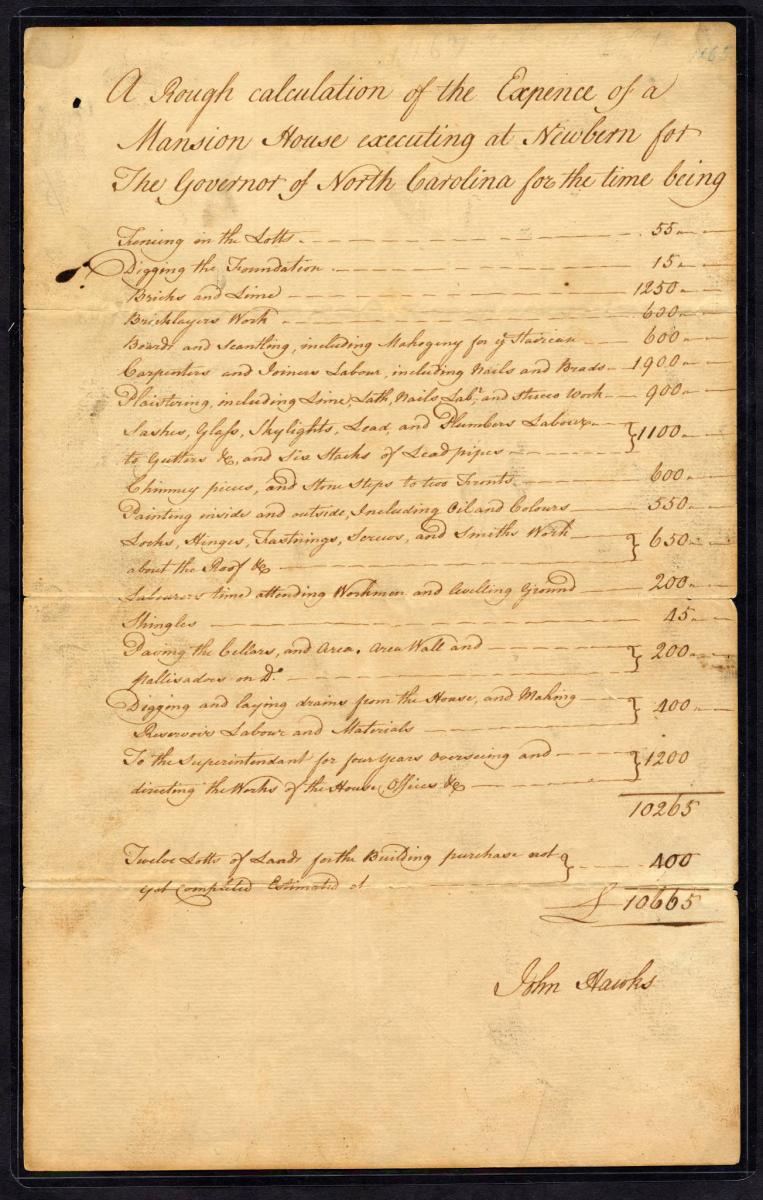 A Rough calculation of the Expence of a
Mansion House executing at Newbern for
The Governor of North Carolina for the time being
Fencing in the Lotts 55
Digging the Foundation 15
Bricks and Lime 1250
Bricklayers Work 600
Boards and Scantling, including Mahogeny for ye Staircase 600
Carpenters and Joiners Labour, including Nails and Brads 1900
Plaistering, including Lime, Lath, Nails, Labr. and Stucco Work 900
Sashes, Glass, Skylights, Lead, and Plumbers Labour
to Gutters &c, and Six Stacks of Lead pipes } 1100
Chimney pieces, and Stone Steps to two Fronts 600
Painting inside and outside, Including Oil and Colours 550
Locks, Hinges, Fastnings, Screws, and Smiths Work
about the Roof &c } 650
Labourers time attending Workmen and levelling Ground 200
Shingles 45
Paving the Cellars, and Area. Area Wall and
pallisadoes on Do. } 200
Digging and laying drains from the House, and Making
Reservoirs Labour and Materials } 400
To the Superintendant for four Years overseeing and
directing the Works of the House, Offices &c } 1200
10265
Twelve Lotts of Land for the Building purchase not
yet completed Estimated at } 400
£ 10665
John Hawks